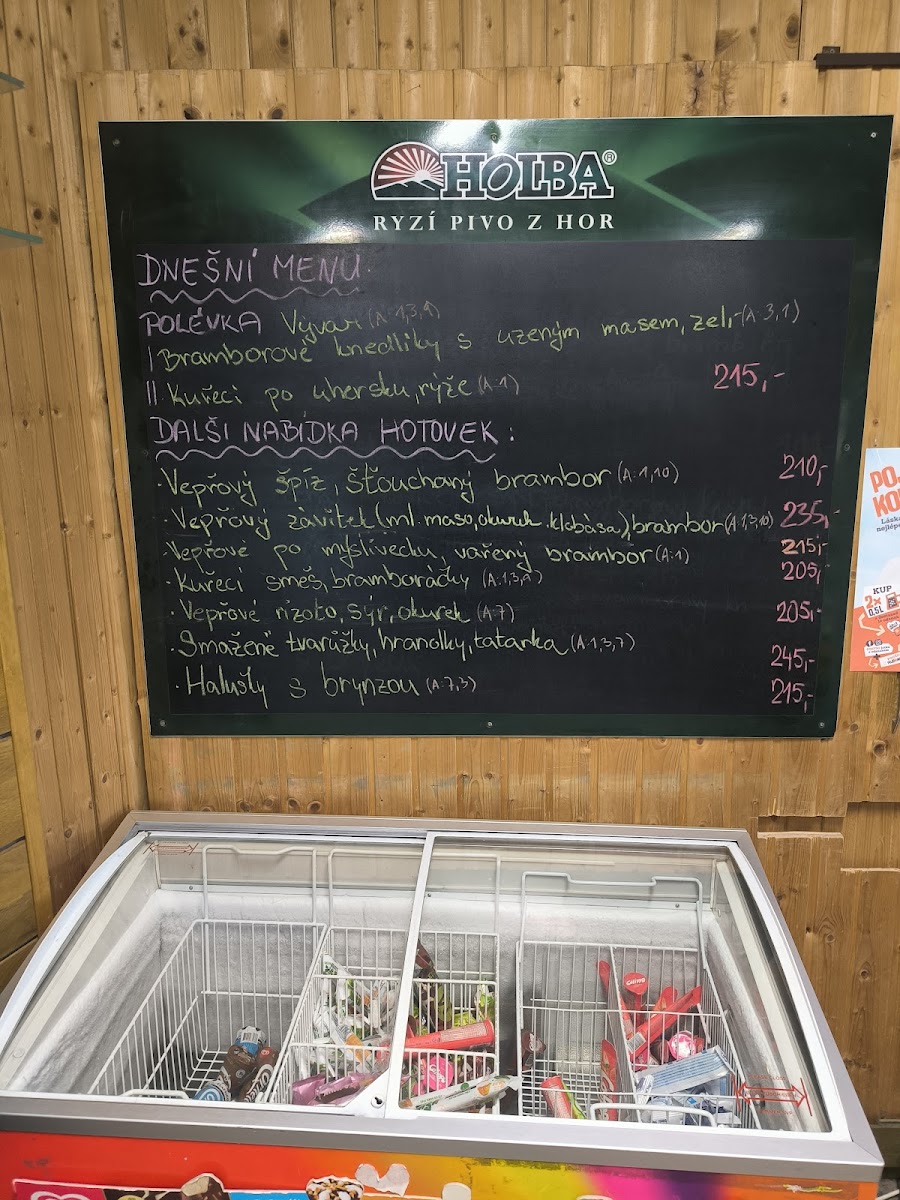 HOLBA®
RYZÍ PIVO Z HOR
DNEŠNÍ MENU
POLÉVKA Vývar (A:1,3,9)
I Bramborové knedlíky s uzeným masem, zelí (A:3,1)
II Kuřecí po uhersku, rýže (A:1) 215,-
DALŠI NABÍDKA HOTOVEK:
· Vepřový špíz, šťouchaný brambor (A:1,10) 210,-
· Vepřový závitek (ml. maso, okurek, klobása), brambor (A:1,3,10) 235,-
· Vepřové po myslivecku, vařený brambor (A:1) 215,-
· Kuřecí směs, bramboráčky (A:1,3,9) 205,-
· Vepřové rizoto, sýr, okurek (A:7) 205,-
· Smažené tvarůžky, hranolky, tatarka (A:1,3,7) 245,-
· Halušky s brynzou (A:7,3) 215,-
KUP
2x
0,5L